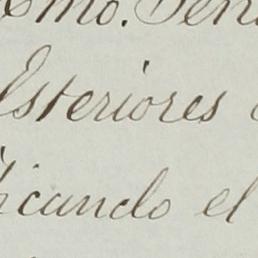 Exmo. Señ
Esteriores
ficando el